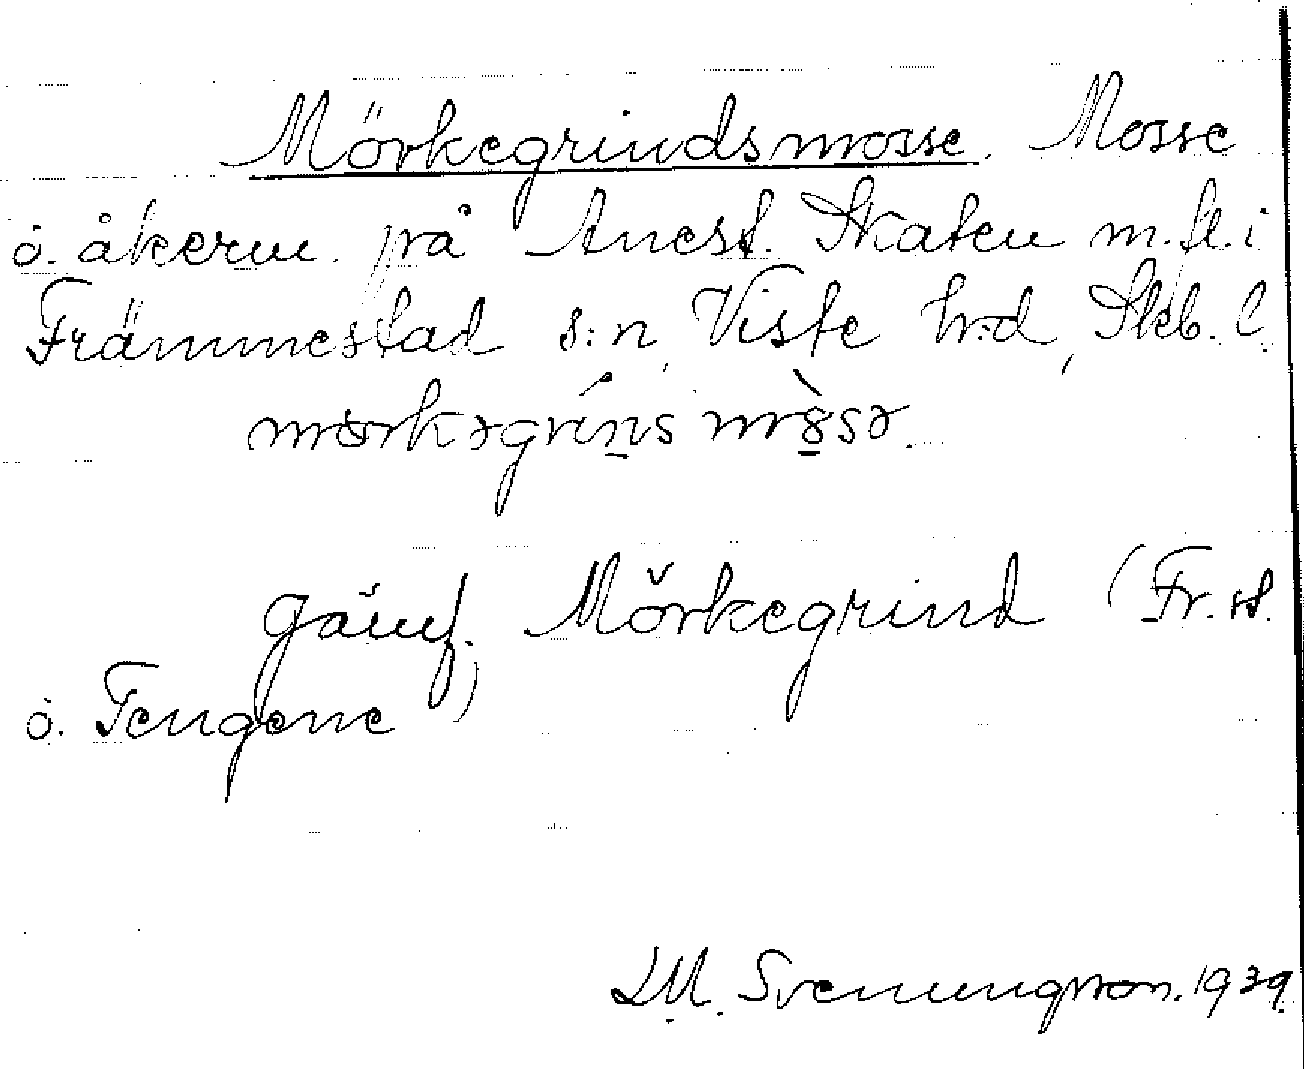 Mörkegrindsmosse. Mosse
o. åkerm. på Anest. Skaten m.fl. i
Främmestad s:n, Viste h:d, Skb. l.
Jämf. Mörkegrind (Fr.st.
o. Tengene)
LM. Svenungsson. 1939.